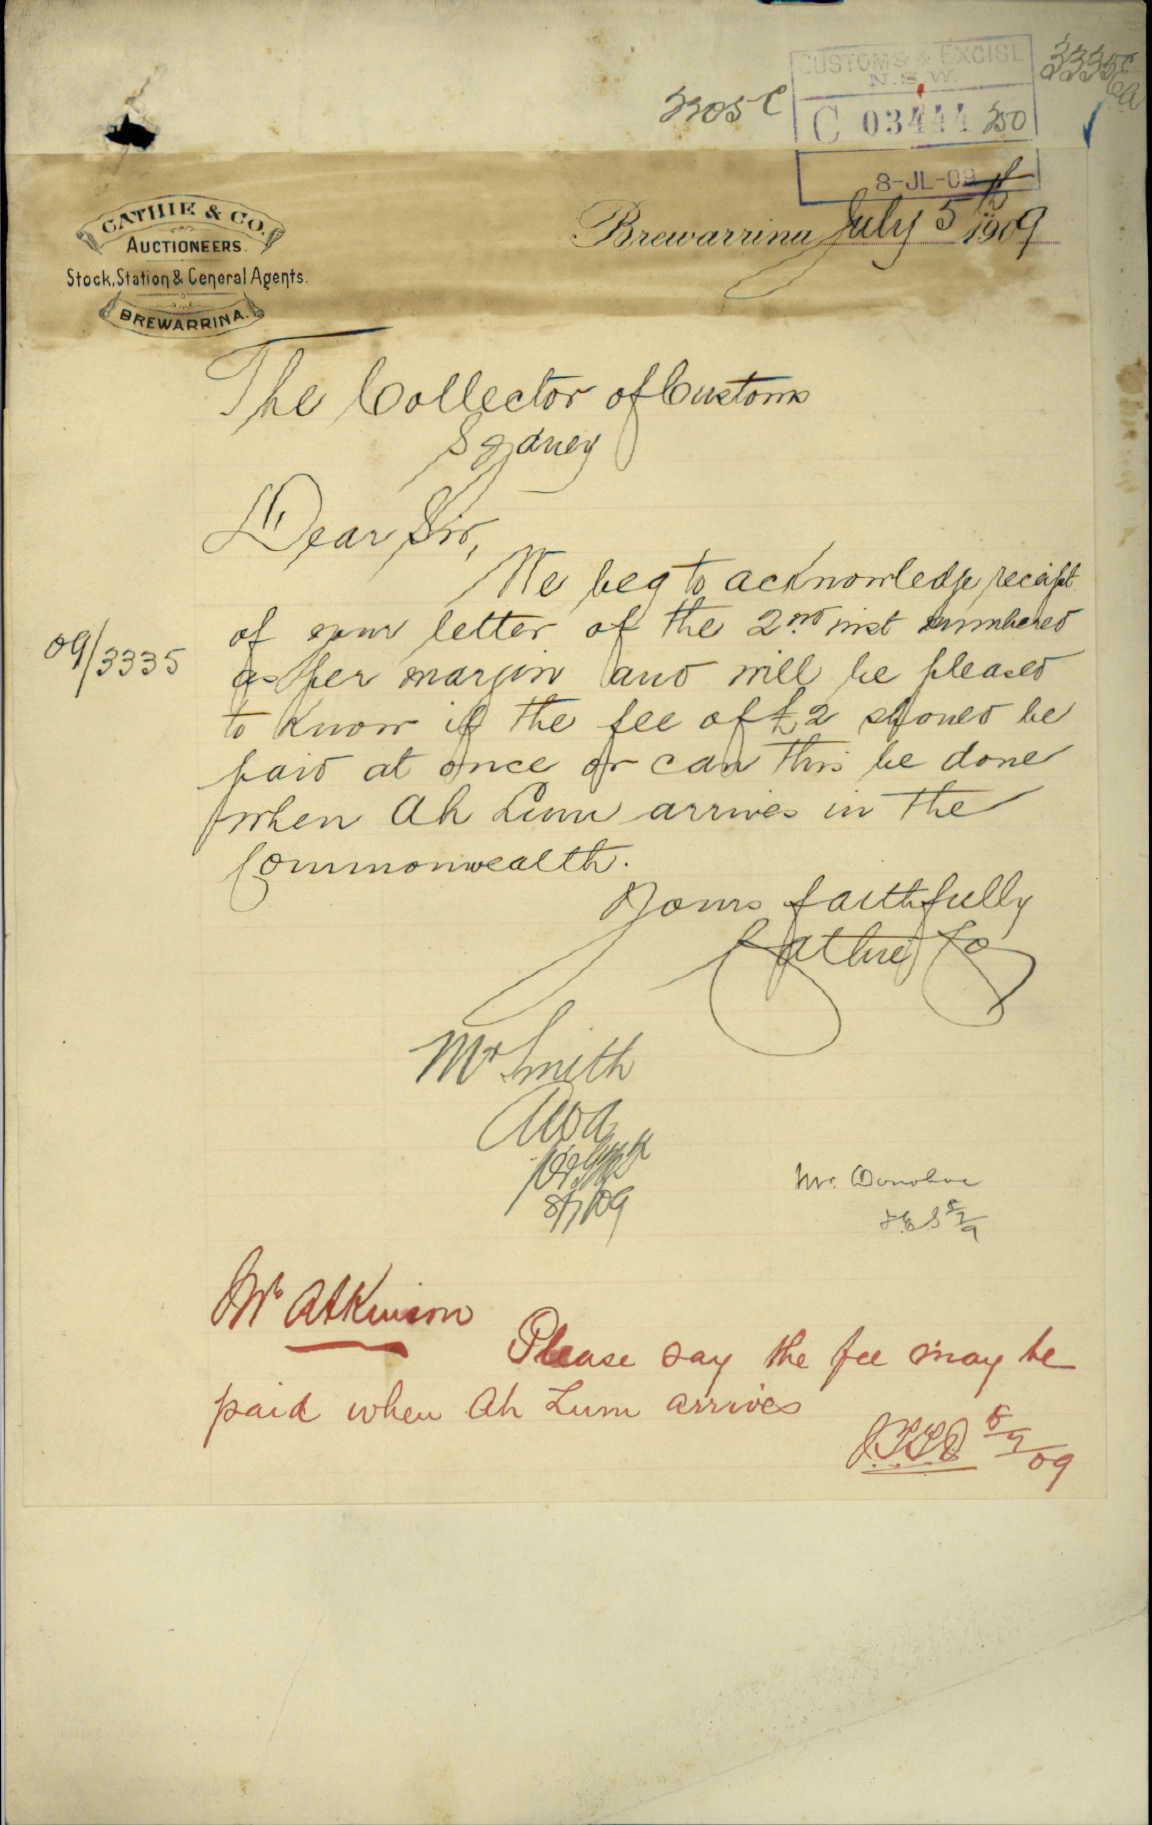 CUSTOMS & EXCISE
N.S.W.
C 03444
8-JL-09
CATHIE & CO.
AUCTIONEERS.
Stock, Station & General Agents.
BREWARRINA.
Brewarrina July 5th 1909
The Collector of Customs
Sydney
Dear Sir,
We beg to acknowledge receipt
of your letter of the 2nd inst numbered
09/3335
as per margin and will be pleased
to know if the fee of £2 should be
paid at once or can this be done
when Ah Lum arrives in the
Commonwealth.
Yours faithfully
Cathie & Co
Mr Smith
8/7/09
Mr. Donohoe
Mr Atkinson
Please say the fee may be
paid when Ah Lum arrives
8/7/09